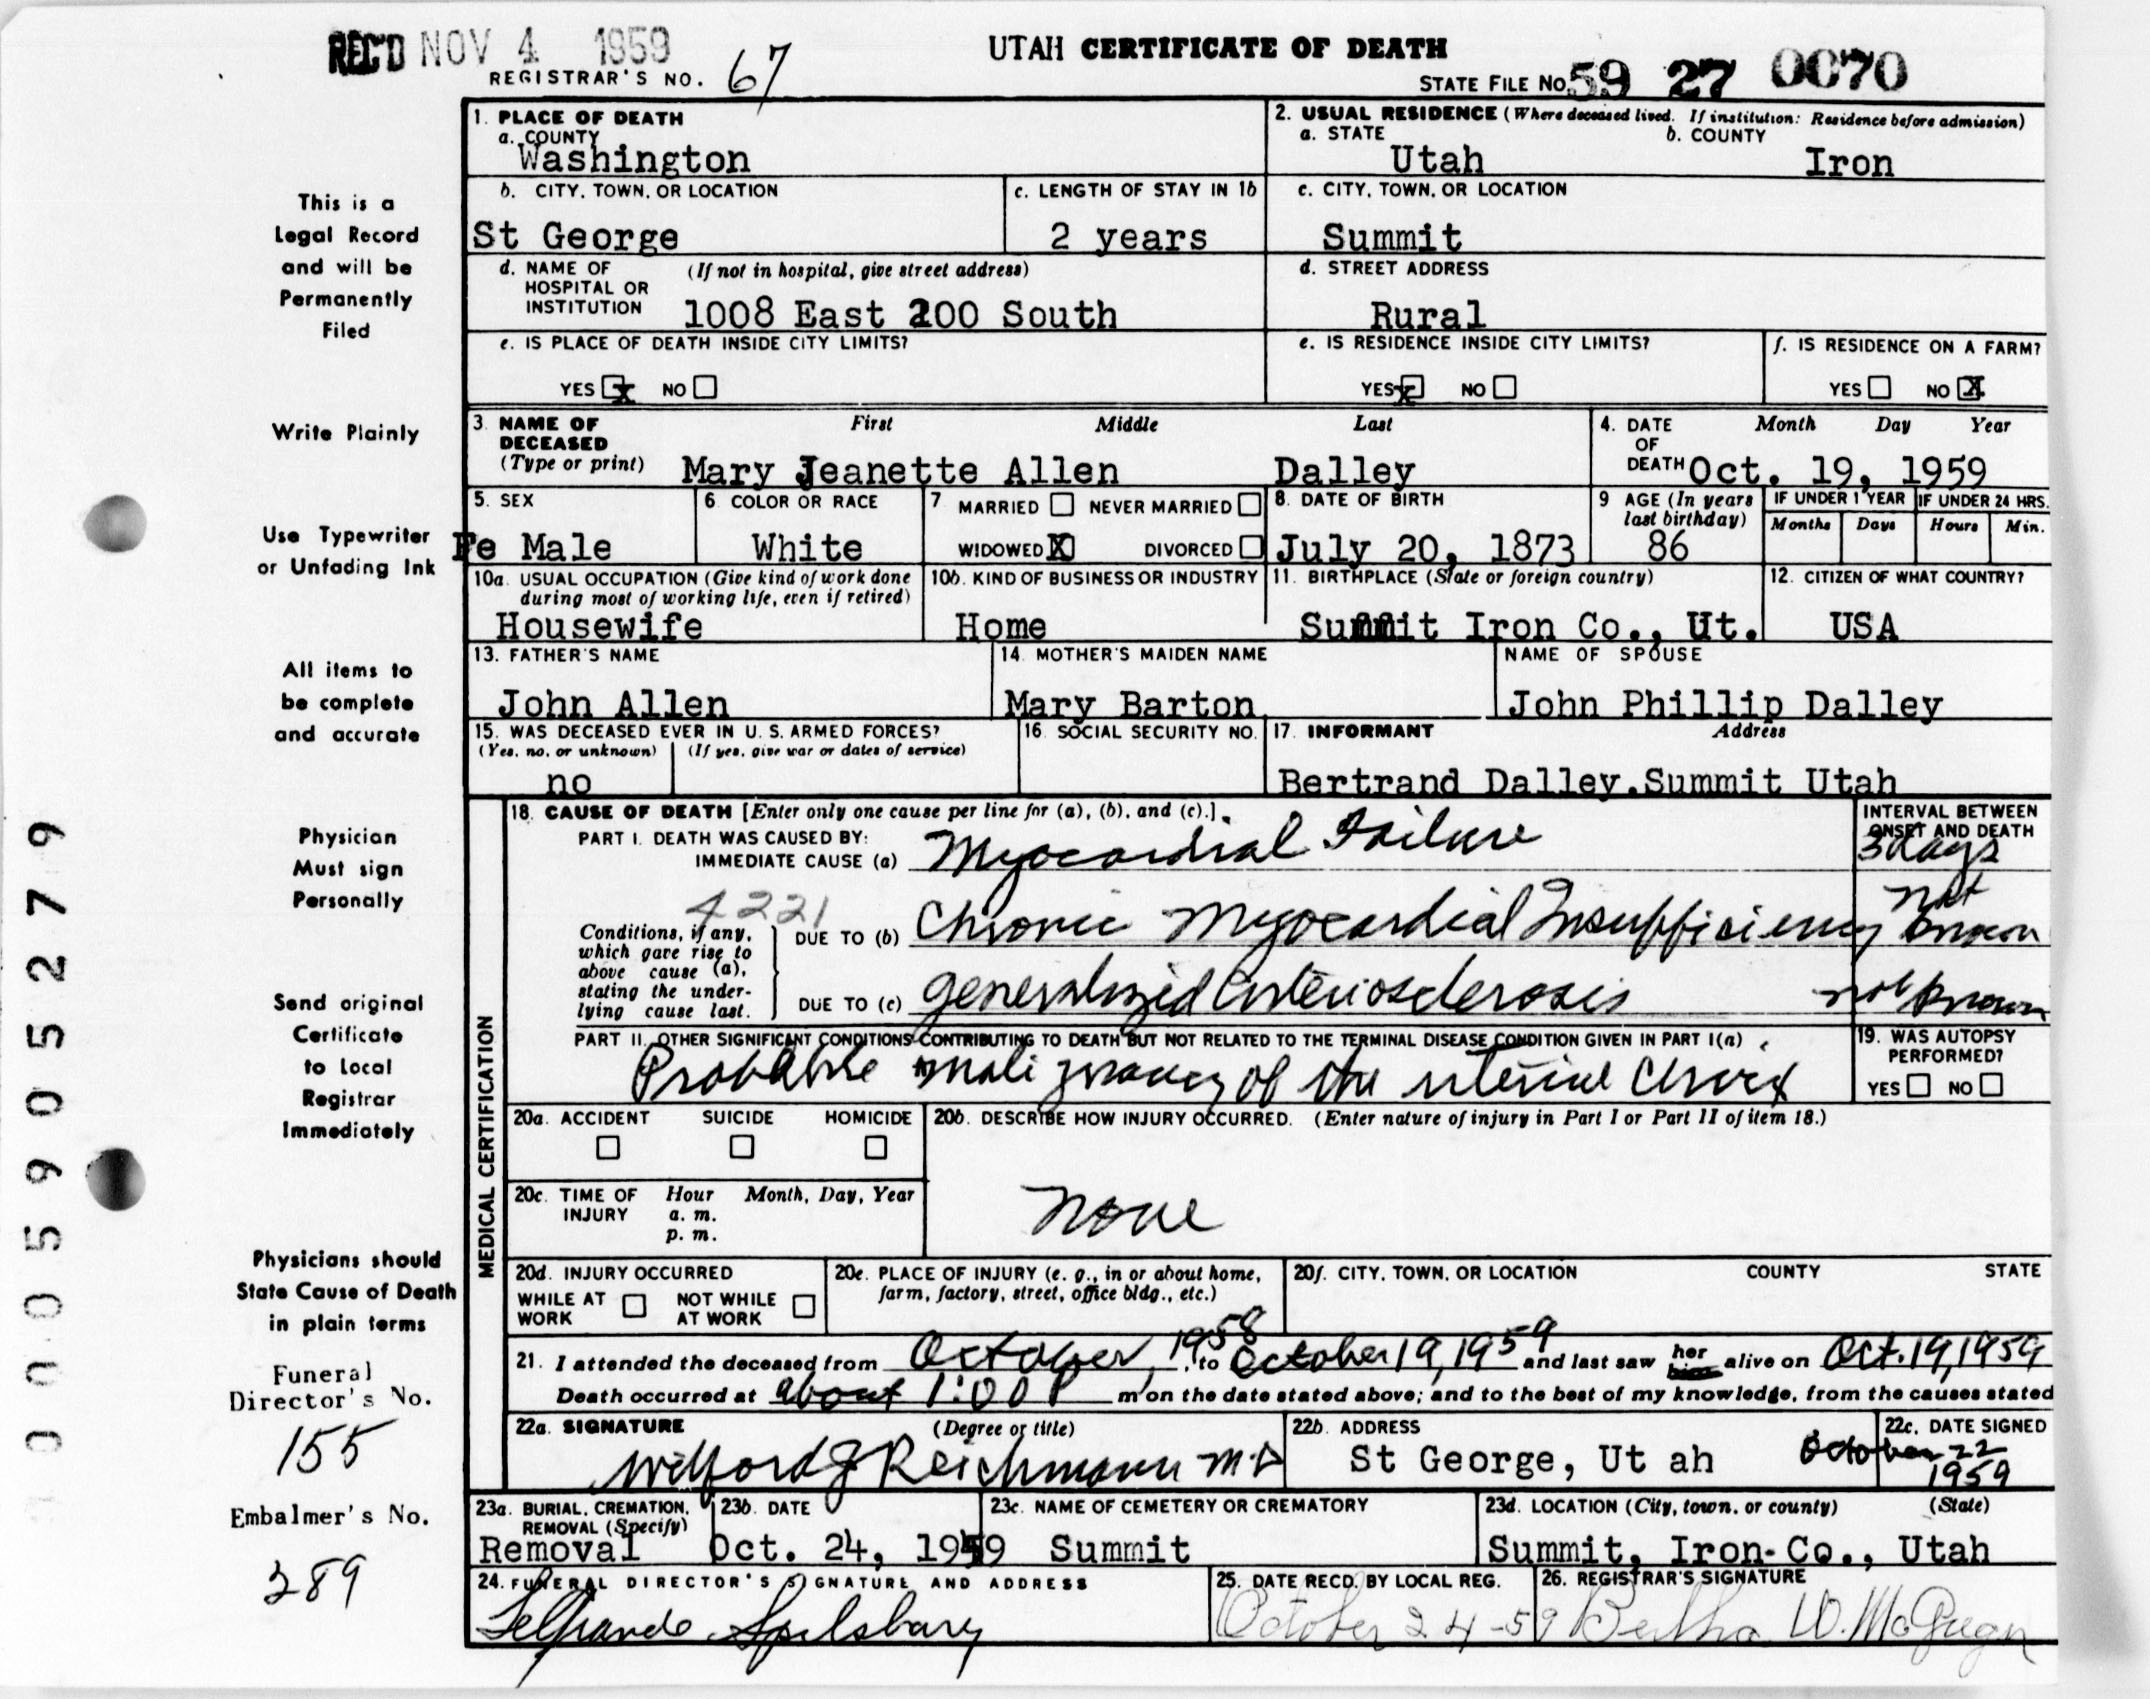 REC'D NOV 4 1959
UTAH CERTIFICATE OF DEATH
REGISTRAR'S NO. 67
STATE FILE NO. 59 27 0070
1. PLACE OF DEATH
a. COUNTY
Washington
2. USUAL RESIDENCE (Where deceased lived. If institution: Residence before admission)
a. STATE b. COUNTY
Utah Iron
b. CITY, TOWN, OR LOCATION
St George
c. LENGTH OF STAY IN 1b
2 years
c. CITY, TOWN, OR LOCATION
Summit
d. NAME OF HOSPITAL OR INSTITUTION (If not in hospital, give street address)
1008 East 200 South
d. STREET ADDRESS
Rural
e. IS PLACE OF DEATH INSIDE CITY LIMITS?
YES X NO
e. IS RESIDENCE INSIDE CITY LIMITS?
YES X NO
f. IS RESIDENCE ON A FARM?
YES NO X
3. NAME OF DECEASED (Type or print) First Middle Last
Mary Jeanette Allen Dalley
4. DATE OF DEATH Month Day Year
Oct. 19, 1959
5. SEX
Fe Male
6. COLOR OR RACE
White
7. MARRIED NEVER MARRIED
WIDOWED X DIVORCED
8. DATE OF BIRTH
July 20, 1873
9 AGE (In years last birthday)
86
IF UNDER 1 YEAR
Months Days
IF UNDER 24 HRS.
Hours Min.
10a. USUAL OCCUPATION (Give kind of work done during most of working life, even if retired)
Housewife
10b. KIND OF BUSINESS OR INDUSTRY
Home
11. BIRTHPLACE (State or foreign country)
Summit Iron Co., Ut.
12. CITIZEN OF WHAT COUNTRY?
USA
13. FATHER'S NAME
John Allen
14. MOTHER'S MAIDEN NAME
Mary Barton
NAME OF SPOUSE
John Phillip Dalley
15. WAS DECEASED EVER IN U. S. ARMED FORCES?
(Yes, no, or unknown) (If yes, give war or dates of service)
no
16. SOCIAL SECURITY NO.
17. INFORMANT Address
Bertrand Dalley.Summit Utah
MEDICAL CERTIFICATION
18. CAUSE OF DEATH [Enter only one cause per line for (a), (b), and (c).]
INTERVAL BETWEEN ONSET AND DEATH
PART I. DEATH WAS CAUSED BY:
IMMEDIATE CAUSE (a) Myocardial Failure 3 days
4221
Conditions, if any, which gave rise to above cause (a), stating the underlying cause last.
DUE TO (b) Chronic Myocardial Insufficiency not known
DUE TO (c) generalized Arteriosclerosis not known
PART II. OTHER SIGNIFICANT CONDITIONS CONTRIBUTING TO DEATH BUT NOT RELATED TO THE TERMINAL DISEASE CONDITION GIVEN IN PART I(a)
Probable malignancy of the uterine cervix
19. WAS AUTOPSY PERFORMED?
YES NO
20a. ACCIDENT SUICIDE HOMICIDE
20b. DESCRIBE HOW INJURY OCCURRED. (Enter nature of injury in Part I or Part II of item 18.)
None
20c. TIME OF INJURY Hour Month, Day, Year
a. m.
p. m.
20d. INJURY OCCURRED
WHILE AT WORK NOT WHILE AT WORK
20e. PLACE OF INJURY (e. g., in or about home, farm, factory, street, office bldg., etc.)
20f. CITY, TOWN, OR LOCATION COUNTY STATE
21. I attended the deceased from October, 1958 to October 19, 1959 and last saw her him alive on Oct. 19, 1959
Death occurred at about 1:00 P m on the date stated above; and to the best of my knowledge, from the causes stated
22a. SIGNATURE (Degree or title)
Wilford J Reichmann M.D
22b. ADDRESS
St George, Ut ah
22c. DATE SIGNED
October 22 1959
23a. BURIAL, CREMATION, REMOVAL (Specify)
Removal
23b. DATE
Oct. 24, 1959
23c. NAME OF CEMETERY OR CREMATORY
Summit
23d. LOCATION (City, town, or county) (State)
Summit, Iron-Co., Utah
24. FUNERAL DIRECTOR'S SIGNATURE AND ADDRESS
LeGrande Spilsbury
25. DATE RECD. BY LOCAL REG.
October 24-59
26. REGISTRAR'S SIGNATURE
Bertha W. McGregor
This is a
Legal Record
and will be
Permanently
Filed
Write Plainly
Use Typewriter
or Unfading Ink
All items to
be complete
and accurate
Physician
Must sign
Personally
Send original
Certificate
to Local
Registrar
Immediately
Physicians should
State Cause of Death
in plain terms
Funeral
Director's No.
155
Embalmer's No.
289
0005905279